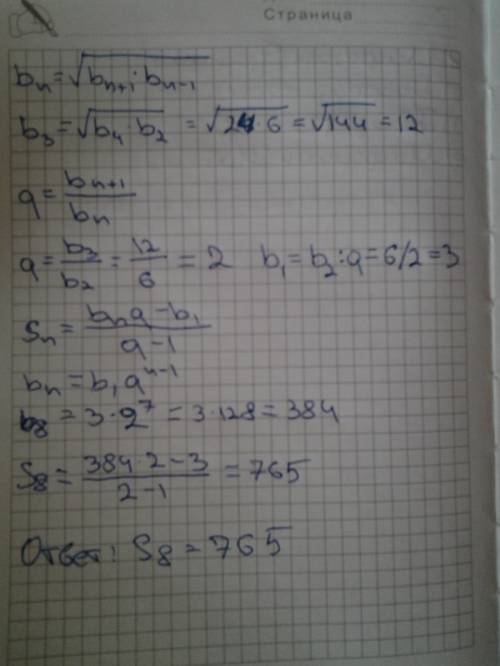 Страница
bₙ = √(bₙ₊₁ · bₙ₋₁)
b₃ = √(b₄ · b₂) = √(24 · 6) = √144 = 12
q = bₙ₊₁ / bₙ
q = b₃ / b₂ = 12 / 6 = 2 b₁ = b₂ : q = 6/2 = 3
Sₙ = (bₙq − b₁) / (q − 1)
bₙ = b₁qⁿ⁻¹
b₈ = 3 · 2⁷ = 3 · 128 = 384
S₈ = (384 · 2 − 3) / (2 − 1) = 765
Ответ: S₈ = 765